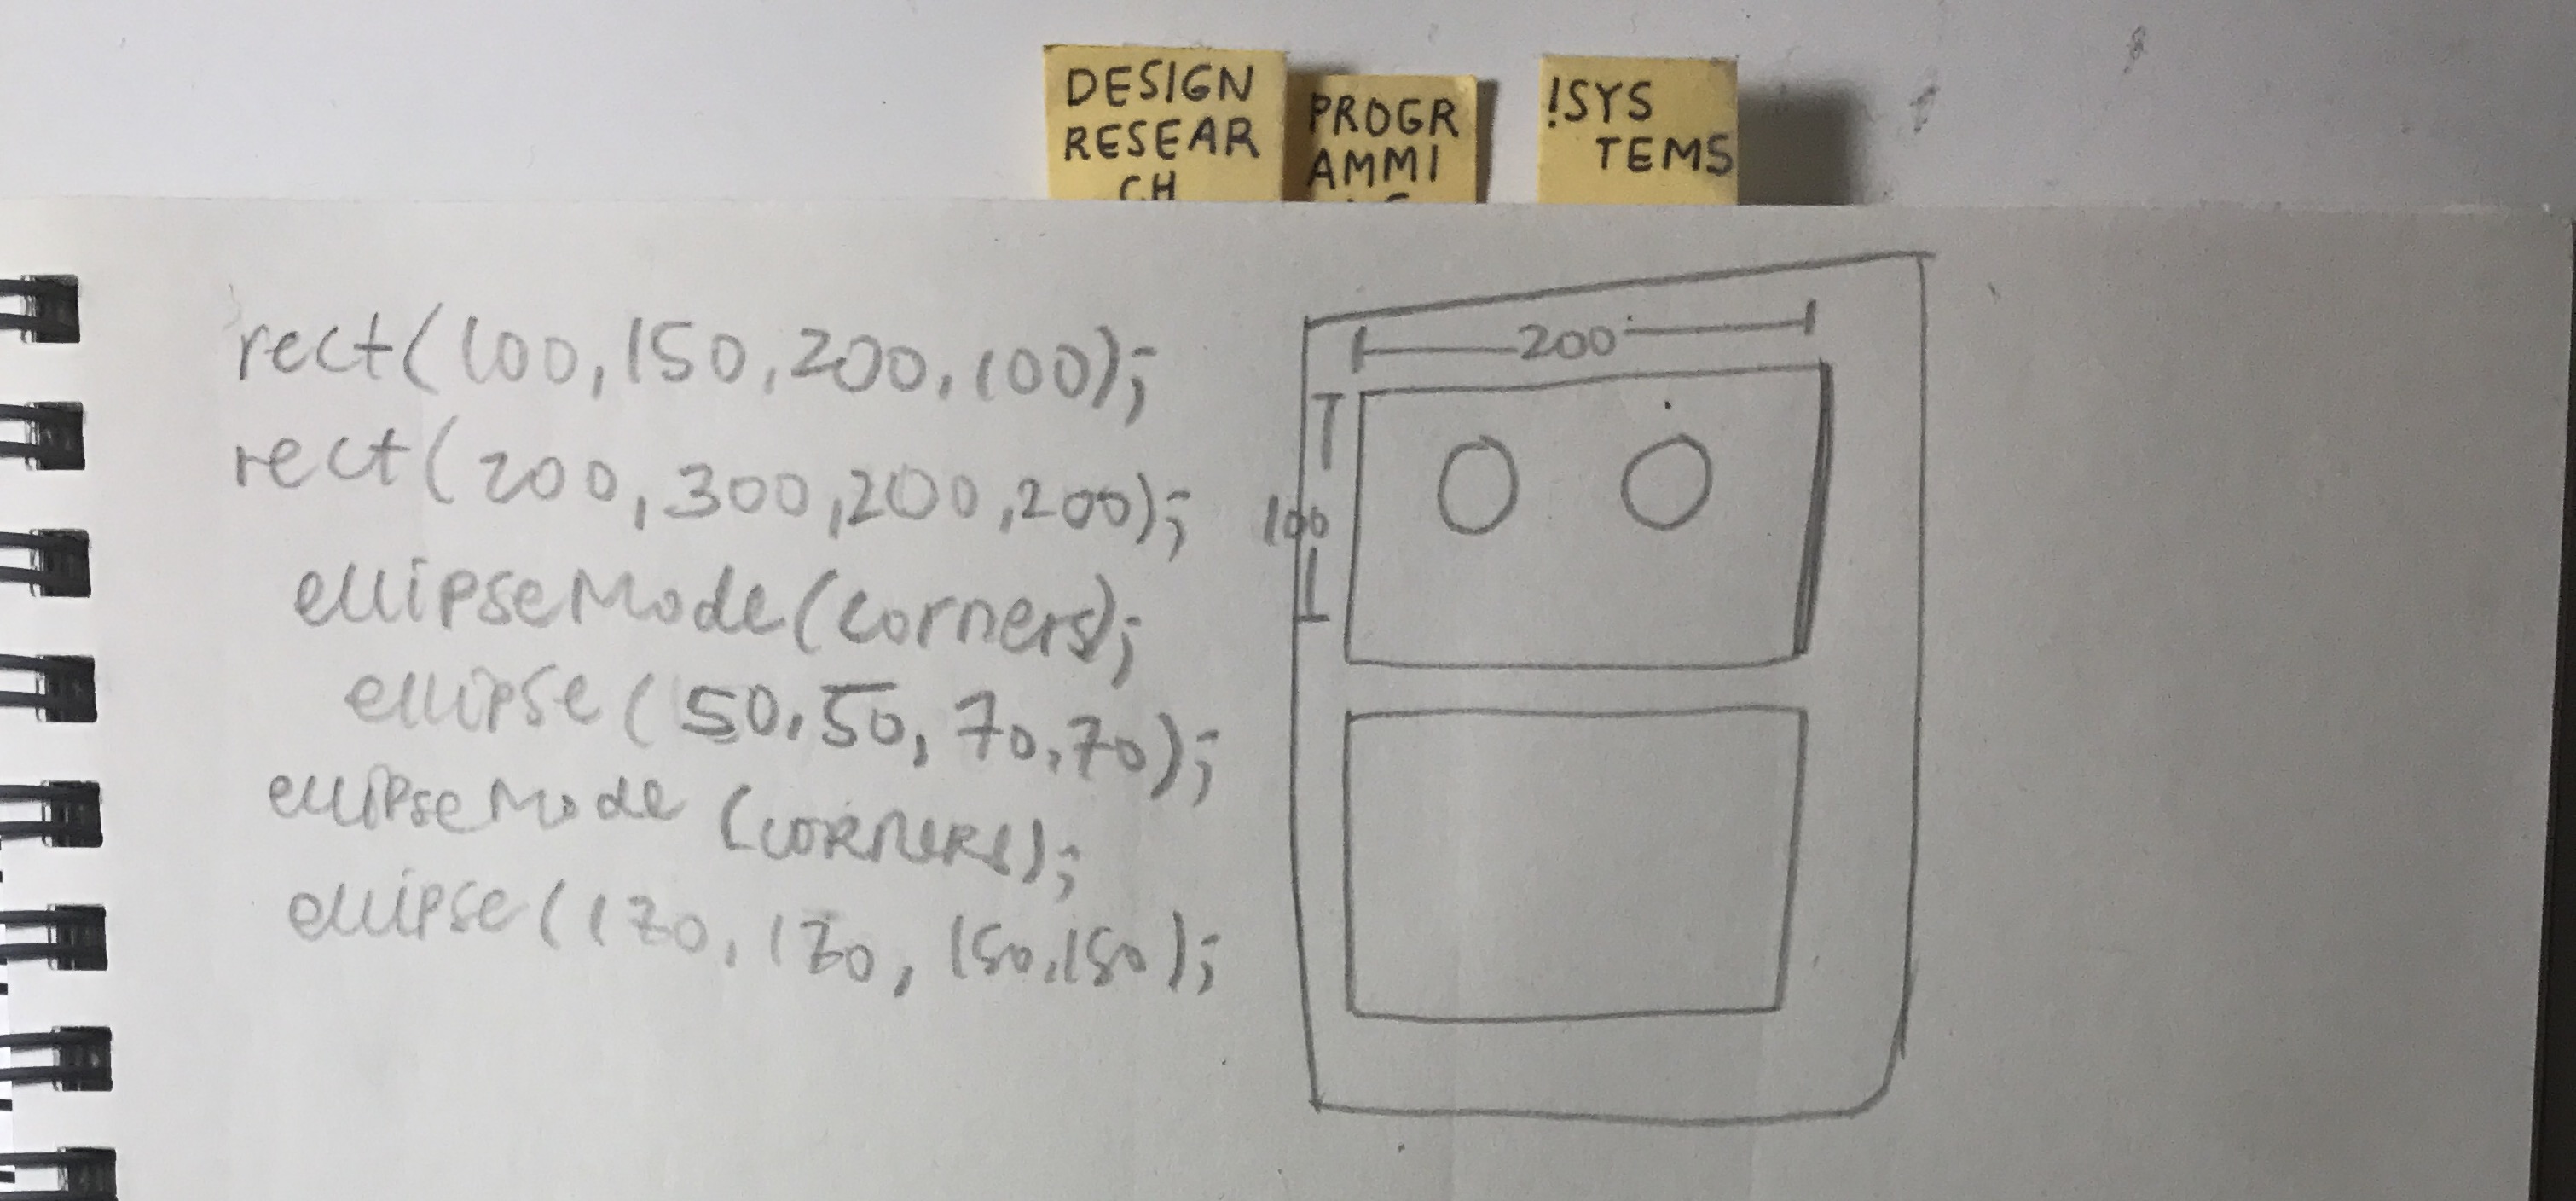 DESIGN
RESEAR
CH
PROGR
AMMI
!SYS
TEMS
rect(100,150,200,100);
rect(200,300,200,200);
ellipseMode(corners);
ellipse(50,50,70,70);
ellipseMode(CORNERS);
ellipse(130,130,150,150);
200
100